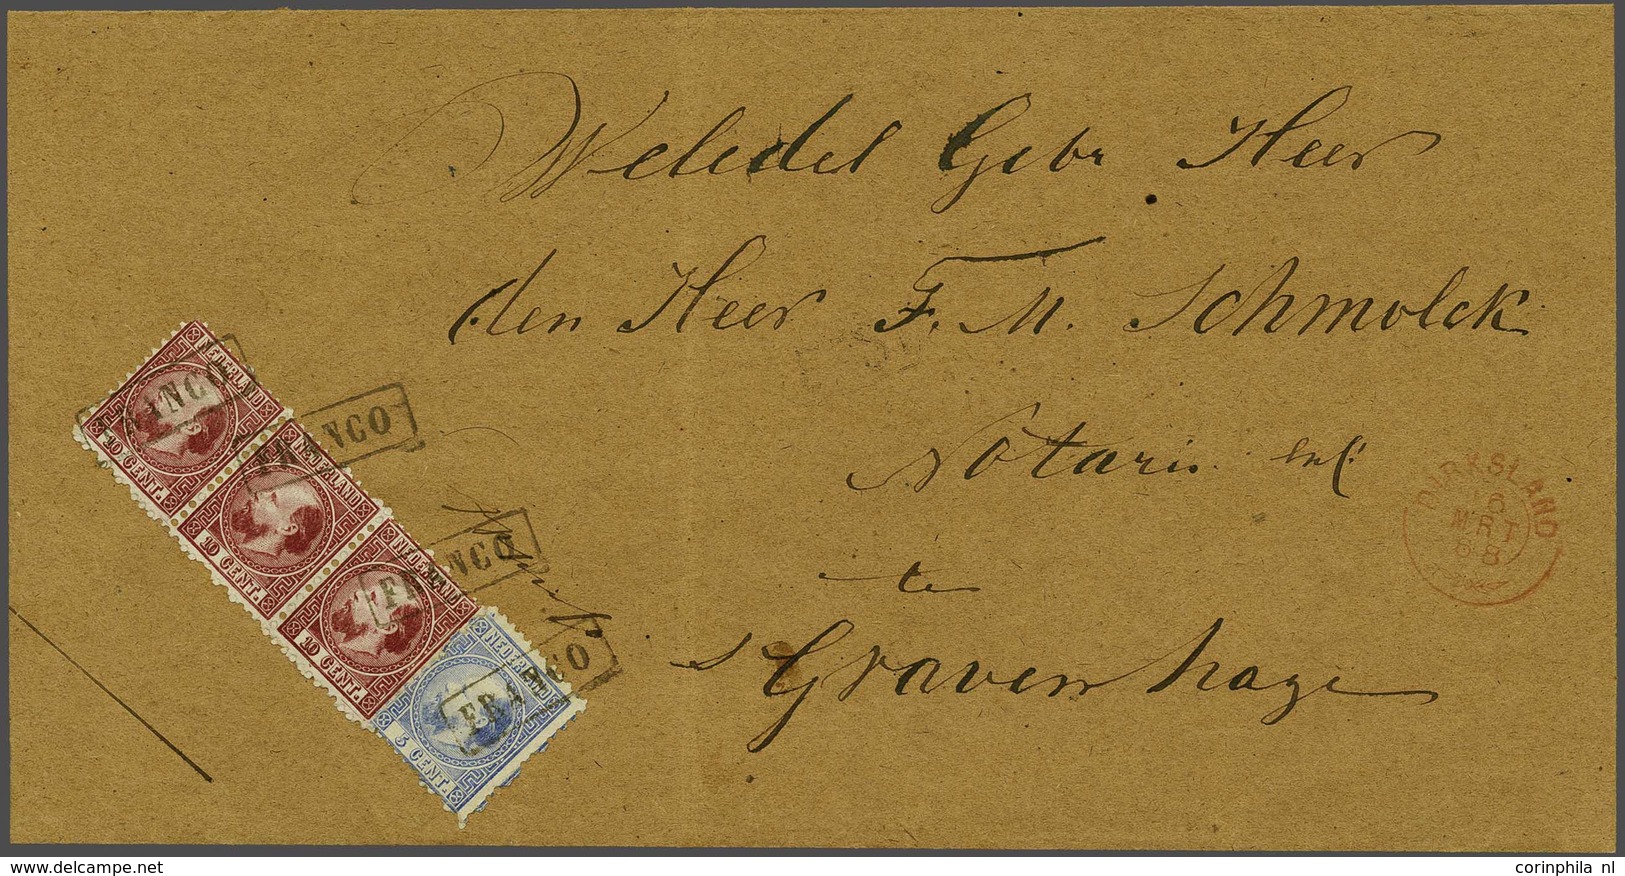 Weledel Gebr Heer
den Heer F. M. Schmolck
Notaris
te
s Gravenhage
NEDERLAND
10 CENT.
FRANCO
NEDERLAND
10 CENT.
FRANCO
NEDERLAND
10 CENT.
FRANCO
NEDERLAND
5 CENT.
FRANCO
DIRKSLAND
6
MRT
68
corinphila nl